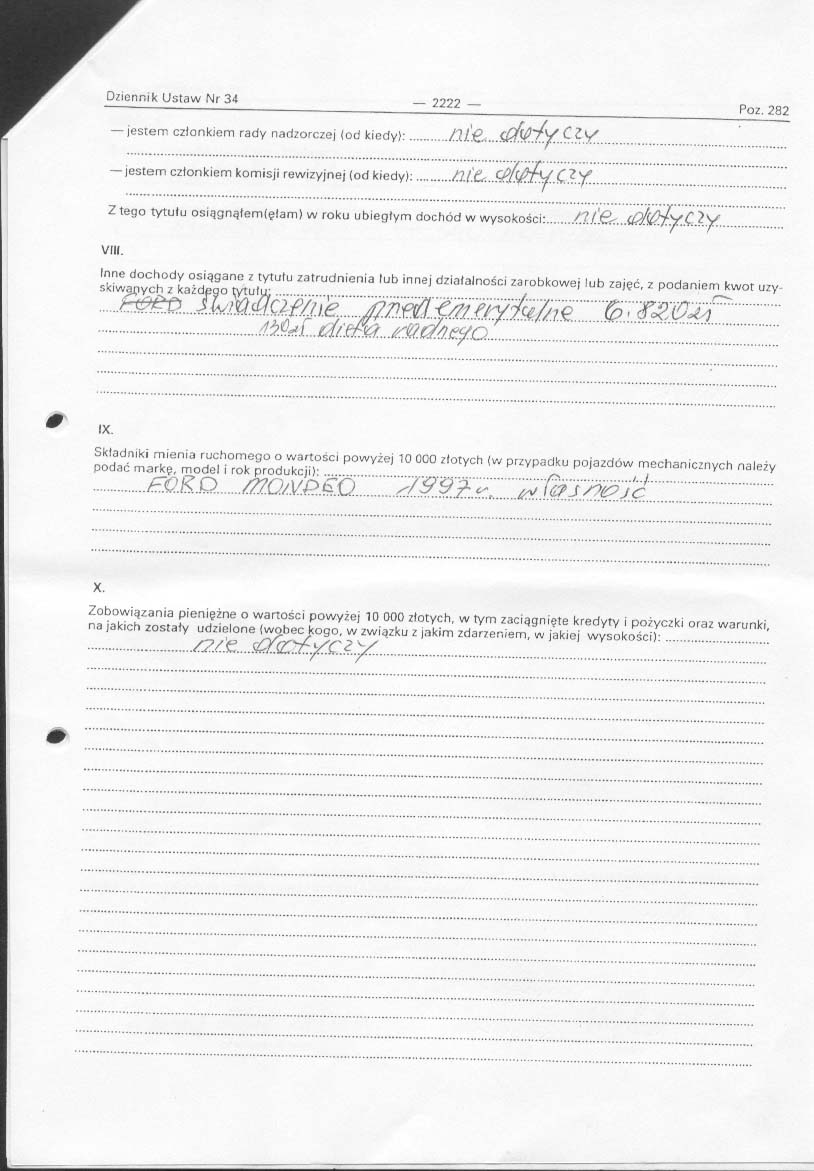 Dziennik Ustaw Nr 34 — 2222 — Poz. 282
— jestem członkiem rady nadzorczej (od kiedy): nie dotyczy
— jestem członkiem komisji rewizyjnej (od kiedy): nie dotyczy
Z tego tytułu osiągnąłem(ęłam) w roku ubiegłym dochód w wysokości: nie dotyczy
VIII.
Inne dochody osiągane z tytułu zatrudnienia lub innej działalności zarobkowej lub zajęć, z podaniem kwot uzy-
skiwanych z każdego tytułu:
FORD świadczenie przedemerytalne 6.820zł
130zł dieta radnego
IX.
Składniki mienia ruchomego o wartości powyżej 10 000 złotych (w przypadku pojazdów mechanicznych należy
podać markę, model i rok produkcji):
FORD MONDEO 1997r. własność
X.
Zobowiązania pieniężne o wartości powyżej 10 000 złotych, w tym zaciągnięte kredyty i pożyczki oraz warunki,
na jakich zostały udzielone (wobec kogo, w związku z jakim zdarzeniem, w jakiej wysokości):
nie dotyczy